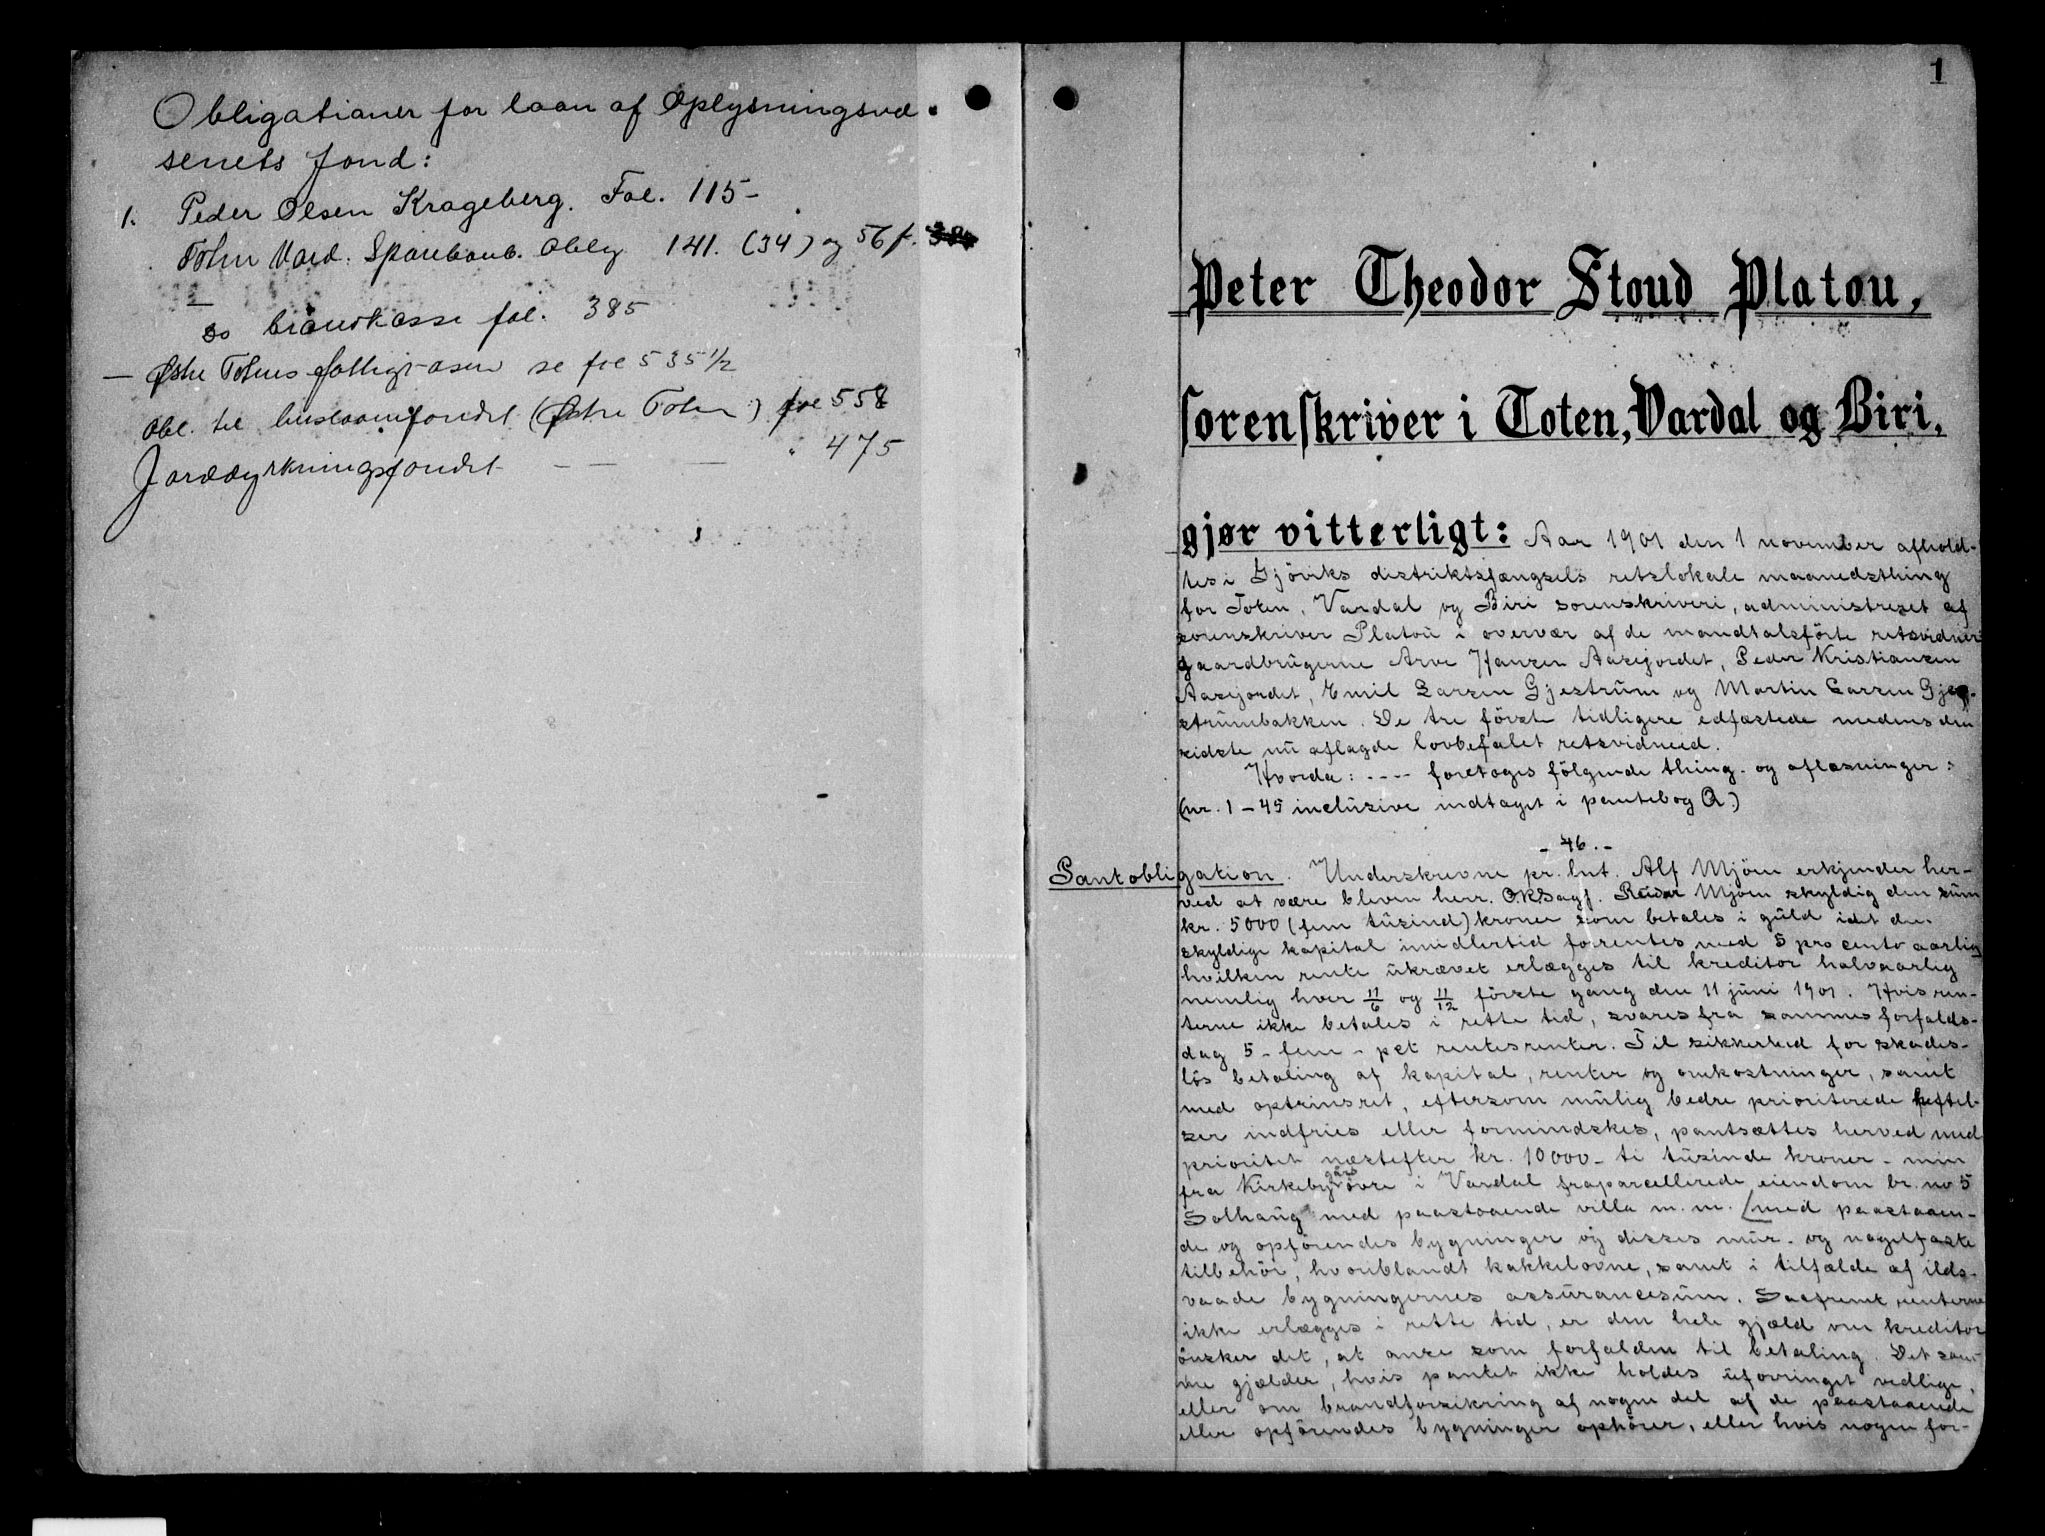 Obligationer for laan af Oplysningsvæ
senets fond:
1. Peder Olsen Krageberg. Fol. 115-
Toten Vard. Sparebank. Oblg 141. (34) og 56 f.
do brandkasse fol. 385
— Østre Totens fattigvæsen se fol 535 1/2
Obl. til huslaanefondet (Østre Toten) fol 558
Jorddyrkningsfondet — — — " 475
1
Peter Theodor Stoud Platou,
sorenskriver i Toten, Vardal og Biri,
gjør vitterligt: Aar 1901 den 1 november afhold-
tes i Gjöviks distriktsfængsels retslokale maanedsthing
for Toten, Vardal og Biri sorenskriveri, administreret af
sorenskriver Platou i overvær af de mandtalsförte retsvidner
gaardbrugerne Arve Hansen Aasejordet, Peder Kristiansen
Aasejordet, Emil Larsen Gjestrum og Martin Larsen Gje-
strumbakken. De tre förste tidligere edfæstede medens den
sidste nu aflagde lovbefalet retsvidneed.
Hvorda: ---- foretoges fölgende thing- og aflæsninger:
(nr. 1-45 inclusive indtaget i pantebog Q.)
- 46. -
Pantobligation. Underskrevne pr. lnt. Alf Mjöen erkjender her-
ved at være bleven herr. O.R.Sagf. Reidar Mjöen skyldig den sum
kr. 5000 (fem tusind) kroner som betales i guld idet den
skyldige kapital imidlertid forrentes med 5 pro cento aarlig
hvilken rente ukrævet erlægges til kreditor halvaarlig
nemlig hver 11/6 og 11/12 förste gang den 11 juni 1901. Hvis ren-
terne ikke betales i rette tid, svares fra sammes forfalds-
dag 5 - fem - pct rentesrenter. Til sikkerhed for skades-
lös betaling af kapital, renter og omkostninger, samt
med optrinsret, eftersom mulig bedre prioriterede heftel-
ser indfries eller formindskes, pantsættes herved med
prioritet næstefter kr. 10000 - ti tusinde kroner - min
fra Kirkeby gârd övre i Vardal fraparcellerede eiendom br. no 5
Solhaug med paastaaende villa m. m. (med paastaaen-
de og opförendes bygninger og disses mur- og nagelfaste
tilbehör, hvoriblandt kakkelovne, samt i tilfælde af ilds-
vaade bygningernes assurancesum. Saafremt renterne
ikke erlægges i rette tid, er den hele gjæld om kreditor
önsker det, at anse som forfalden til betaling. Det sam-
me gjælder, hvis pantet ikke holdes uforringet vedlige,
eller om brandforsikring af nogen del af de paastaaende
eller opförendes bygninger ophörer, eller hvis nogen for-